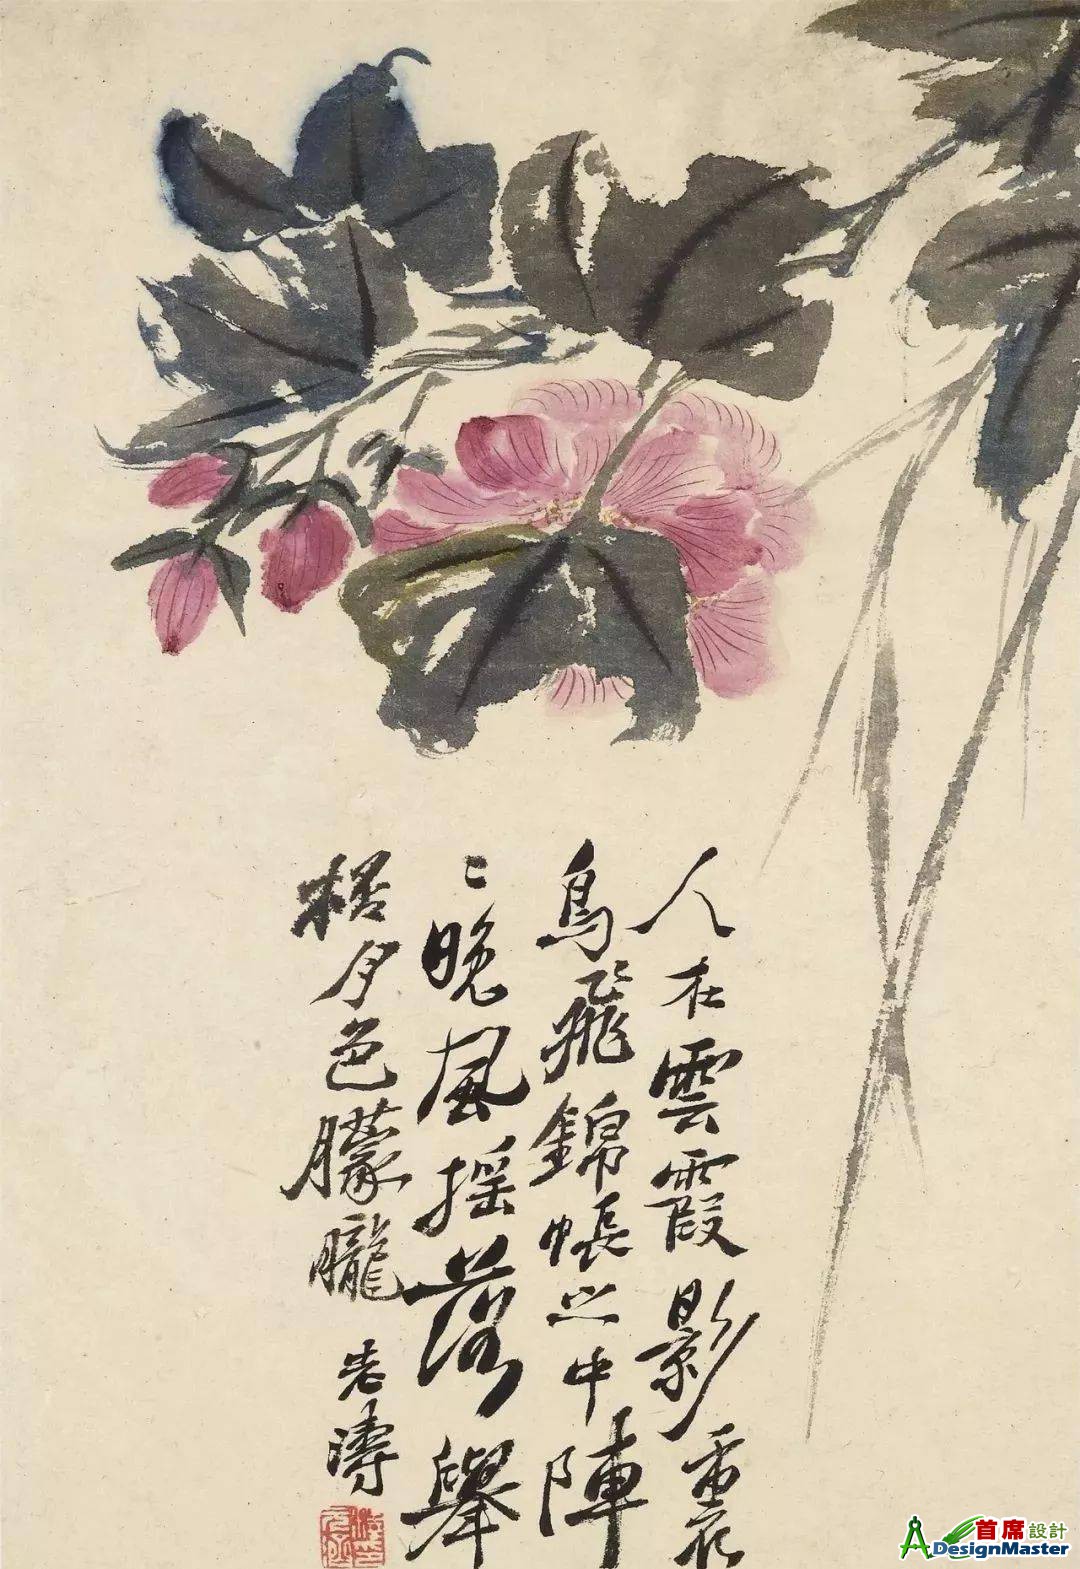 人在雲霞影裏
鳥飛錦帳之中陣
〻晚風搖落舉
桮月色朦朧
老濤
首席設計
DesignMaster